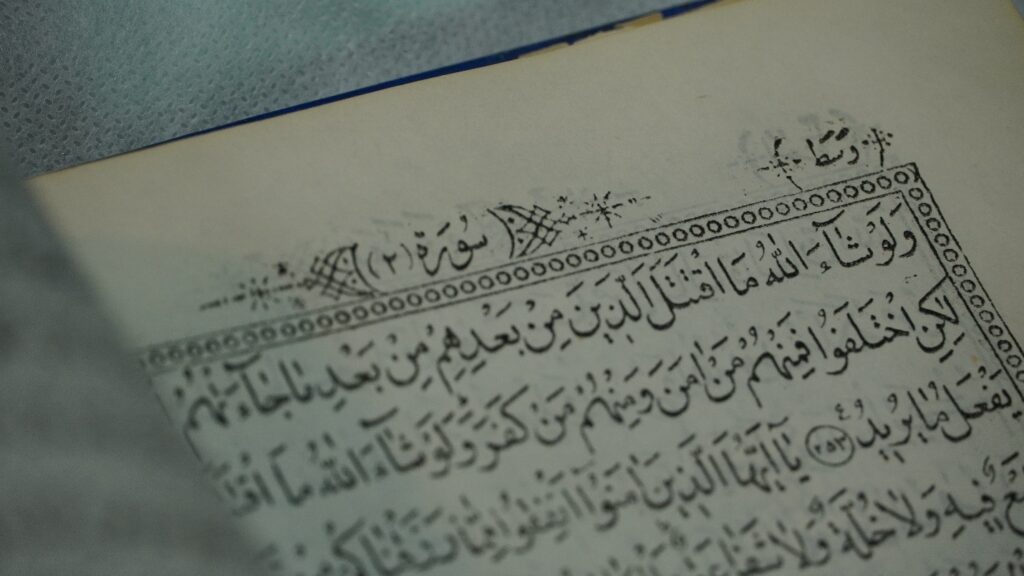 وسقط
سُورَة (٢)
وَلَوْ شَآءَ اللّٰهُ مَا اقْتَتَلَ الَّذِينَ مِنْ بَعْدِهِمْ مِنْ بَعْدِ مَا جَآءَتْهُمُ
لٰكِنِ اخْتَلَفُوا فَمِنْهُمْ مَنْ اٰمَنَ وَمِنْهُمْ مَنْ كَفَرَ وَلَوْ شَآءَ اللّٰهُ مَا
يَفْعَلُ مَا يُرِيدُ ٤ (٢٥٣) يَا اَيُّهَا الَّذِينَ اٰمَنُوا اَنْفِقُوا مِمَّا رَزَقْنَاكُمْ
فِيهِ وَلَا خُلَّةٌ وَلَا شَفَاعَةٌ